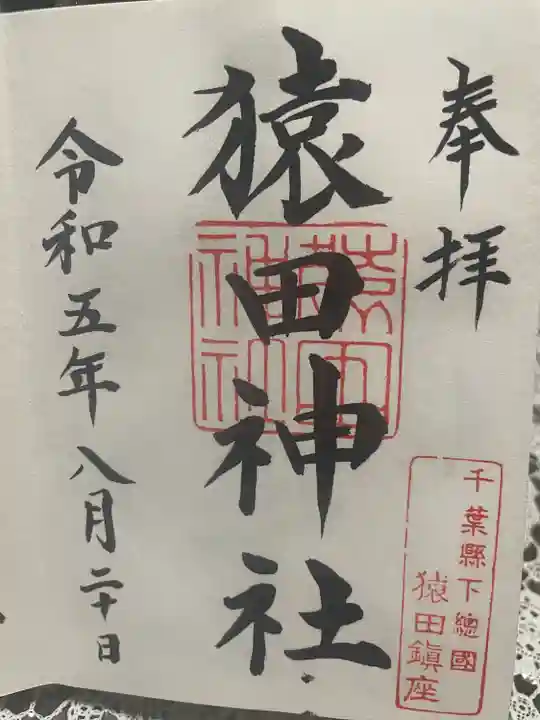 奉拝
猿田神社
猿田神社
千葉縣下總國
猿田鎮座
令和五年八月二十日